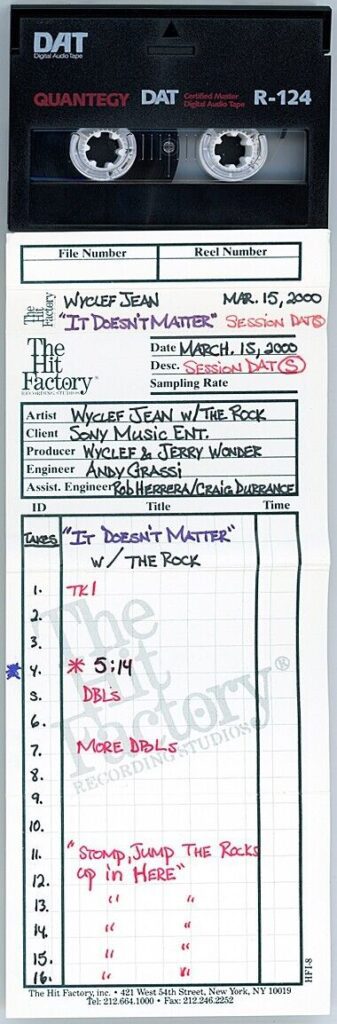 DAT
Digital Audio Tape
QUANTEGY DAT Certified Master Digital Audio Tape R-124
File Number Reel Number
The Hit Factory WYCLEF JEAN MAR. 15, 2000
"IT DOESN'T MATTER" SESSION DAT(S)
The Hit Factory
RECORDING STUDIOS
Date MARCH. 15, 2000
Desc. SESSION DAT(S)
Sampling Rate
Artist WYCLEF JEAN W/THE ROCK
Client SONY MUSIC ENT.
Producer WYCLEF & JERRY WONDER
Engineer ANDY GRASSI
Assist. Engineer ROB HERRERA/CRAIG DURRANCE
ID Title Time
TAKES "IT DOESN'T MATTER"
W/ THE ROCK
1. TK1
2.
3.
* 4. * 5:14
5. DBLS
6.
7. MORE DBLS
8.
9.
10.
11. "STOMP, JUMP THE ROCKS
12. UP IN HERE"
13. " "
14. " "
15. " "
16. " "
The Hit Factory®
RECORDING STUDIOS
HFI-8
The Hit Factory, inc. • 421 West 54th Street, New York, NY 10019
Tel: 212.664.1000 • Fax: 212.246.2252